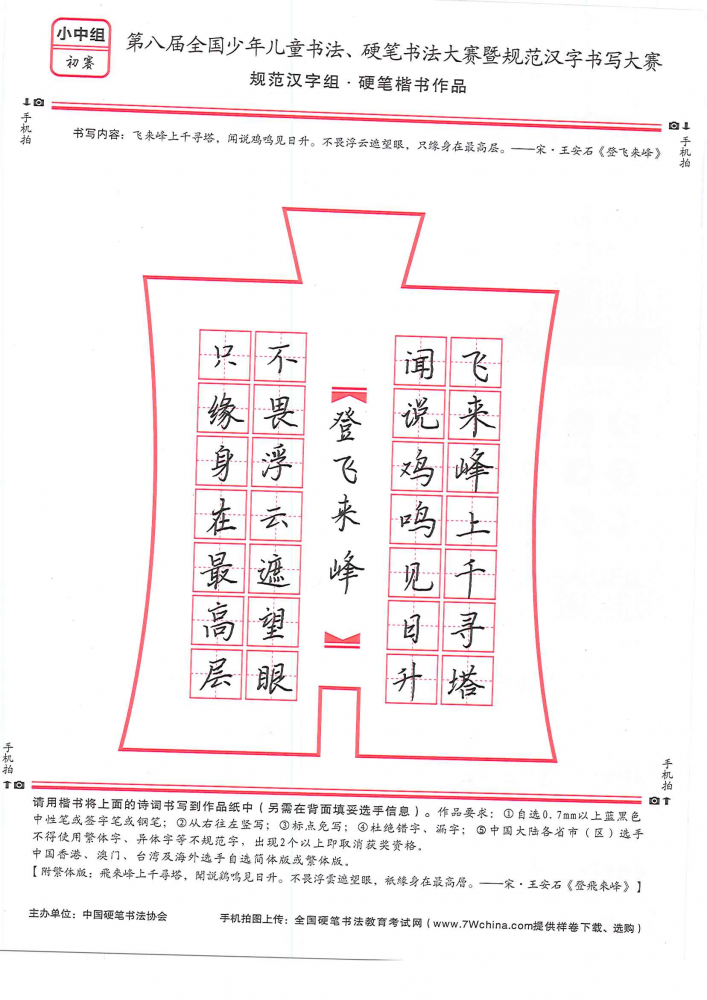 小中组
初赛
第八届全国少年儿童书法、硬笔书法大赛暨规范汉字书写大赛
规范汉字组·硬笔楷书作品
手机拍
手机拍
书写内容：飞来峰上千寻塔，闻说鸡鸣见日升。不畏浮云遮望眼，只缘身在最高层。——宋·王安石《登飞来峰》
飞来峰上千寻塔
闻说鸡鸣见日升
登飞来峰
不畏浮云遮望眼
只缘身在最高层
手机拍
手机拍
请用楷书将上面的诗词书写到作品纸中（另需在背面填妥选手信息）。作品要求：①自选0.7mm以上蓝黑色
中性笔或签字笔或钢笔；②从右往左竖写；③标点免写；④杜绝错字、漏字；⑤中国大陆各省市（区）选手
不得使用繁体字、异体字等不规范字，出现2个以上即取消获奖资格。
中国香港、澳门、台湾及海外选手自选简体版或繁体版。
【附繁体版：飛来峰上千尋塔，聞説鷄鳴見日升。不畏浮雲遮望眼，衹緣身在最高層。——宋·王安石《登飛来峰》】
主办单位：中国硬笔书法协会
手机拍图上传：全国硬笔书法教育考试网（www.7Wchina.com提供样卷下载、选购）